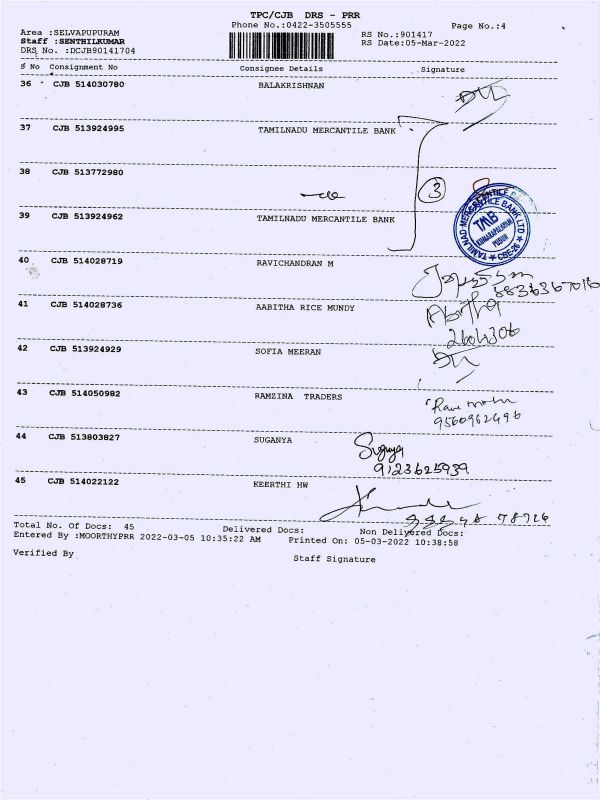 TPC/CJB DRS - PRR
Area :SELVAPUPURAM Phone No.:0422-3505555 Page No.:4
Staff :SENTHILKUMAR RS No.:901417
DRS No. :DCJB90141704 RS Date:05-Mar-2022
S No Consignment No Consignee Details Signature
36 CJB 514030780 BALAKRISHNAN
37 CJB 513924995 TAMILNADU MERCANTILE BANK
38 CJB 513772980
— do 3
39 CJB 513924962 TAMILNADU MERCANTILE BANK
TAMILNAD MERCANTILE BANK LTD
TMB
CBE-26
40 CJB 514028719 RAVICHANDRAN M
41 CJB 514028736 AABITHA RICE MUNDY
Abitha
2604306
42 CJB 513924929 SOFIA MEERAN
43 CJB 514050982 RAMZINA TRADERS
44 CJB 513803827 SUGANYA Suganya
9123625939
45 CJB 514022122 KEERTHI HW
Total No. Of Docs: 45 Delivered Docs: Non Delivered Docs:
Entered By :MOORTHYPRR 2022-03-05 10:35:22 AM Printed On: 05-03-2022 10:38:58
Verified By Staff Signature